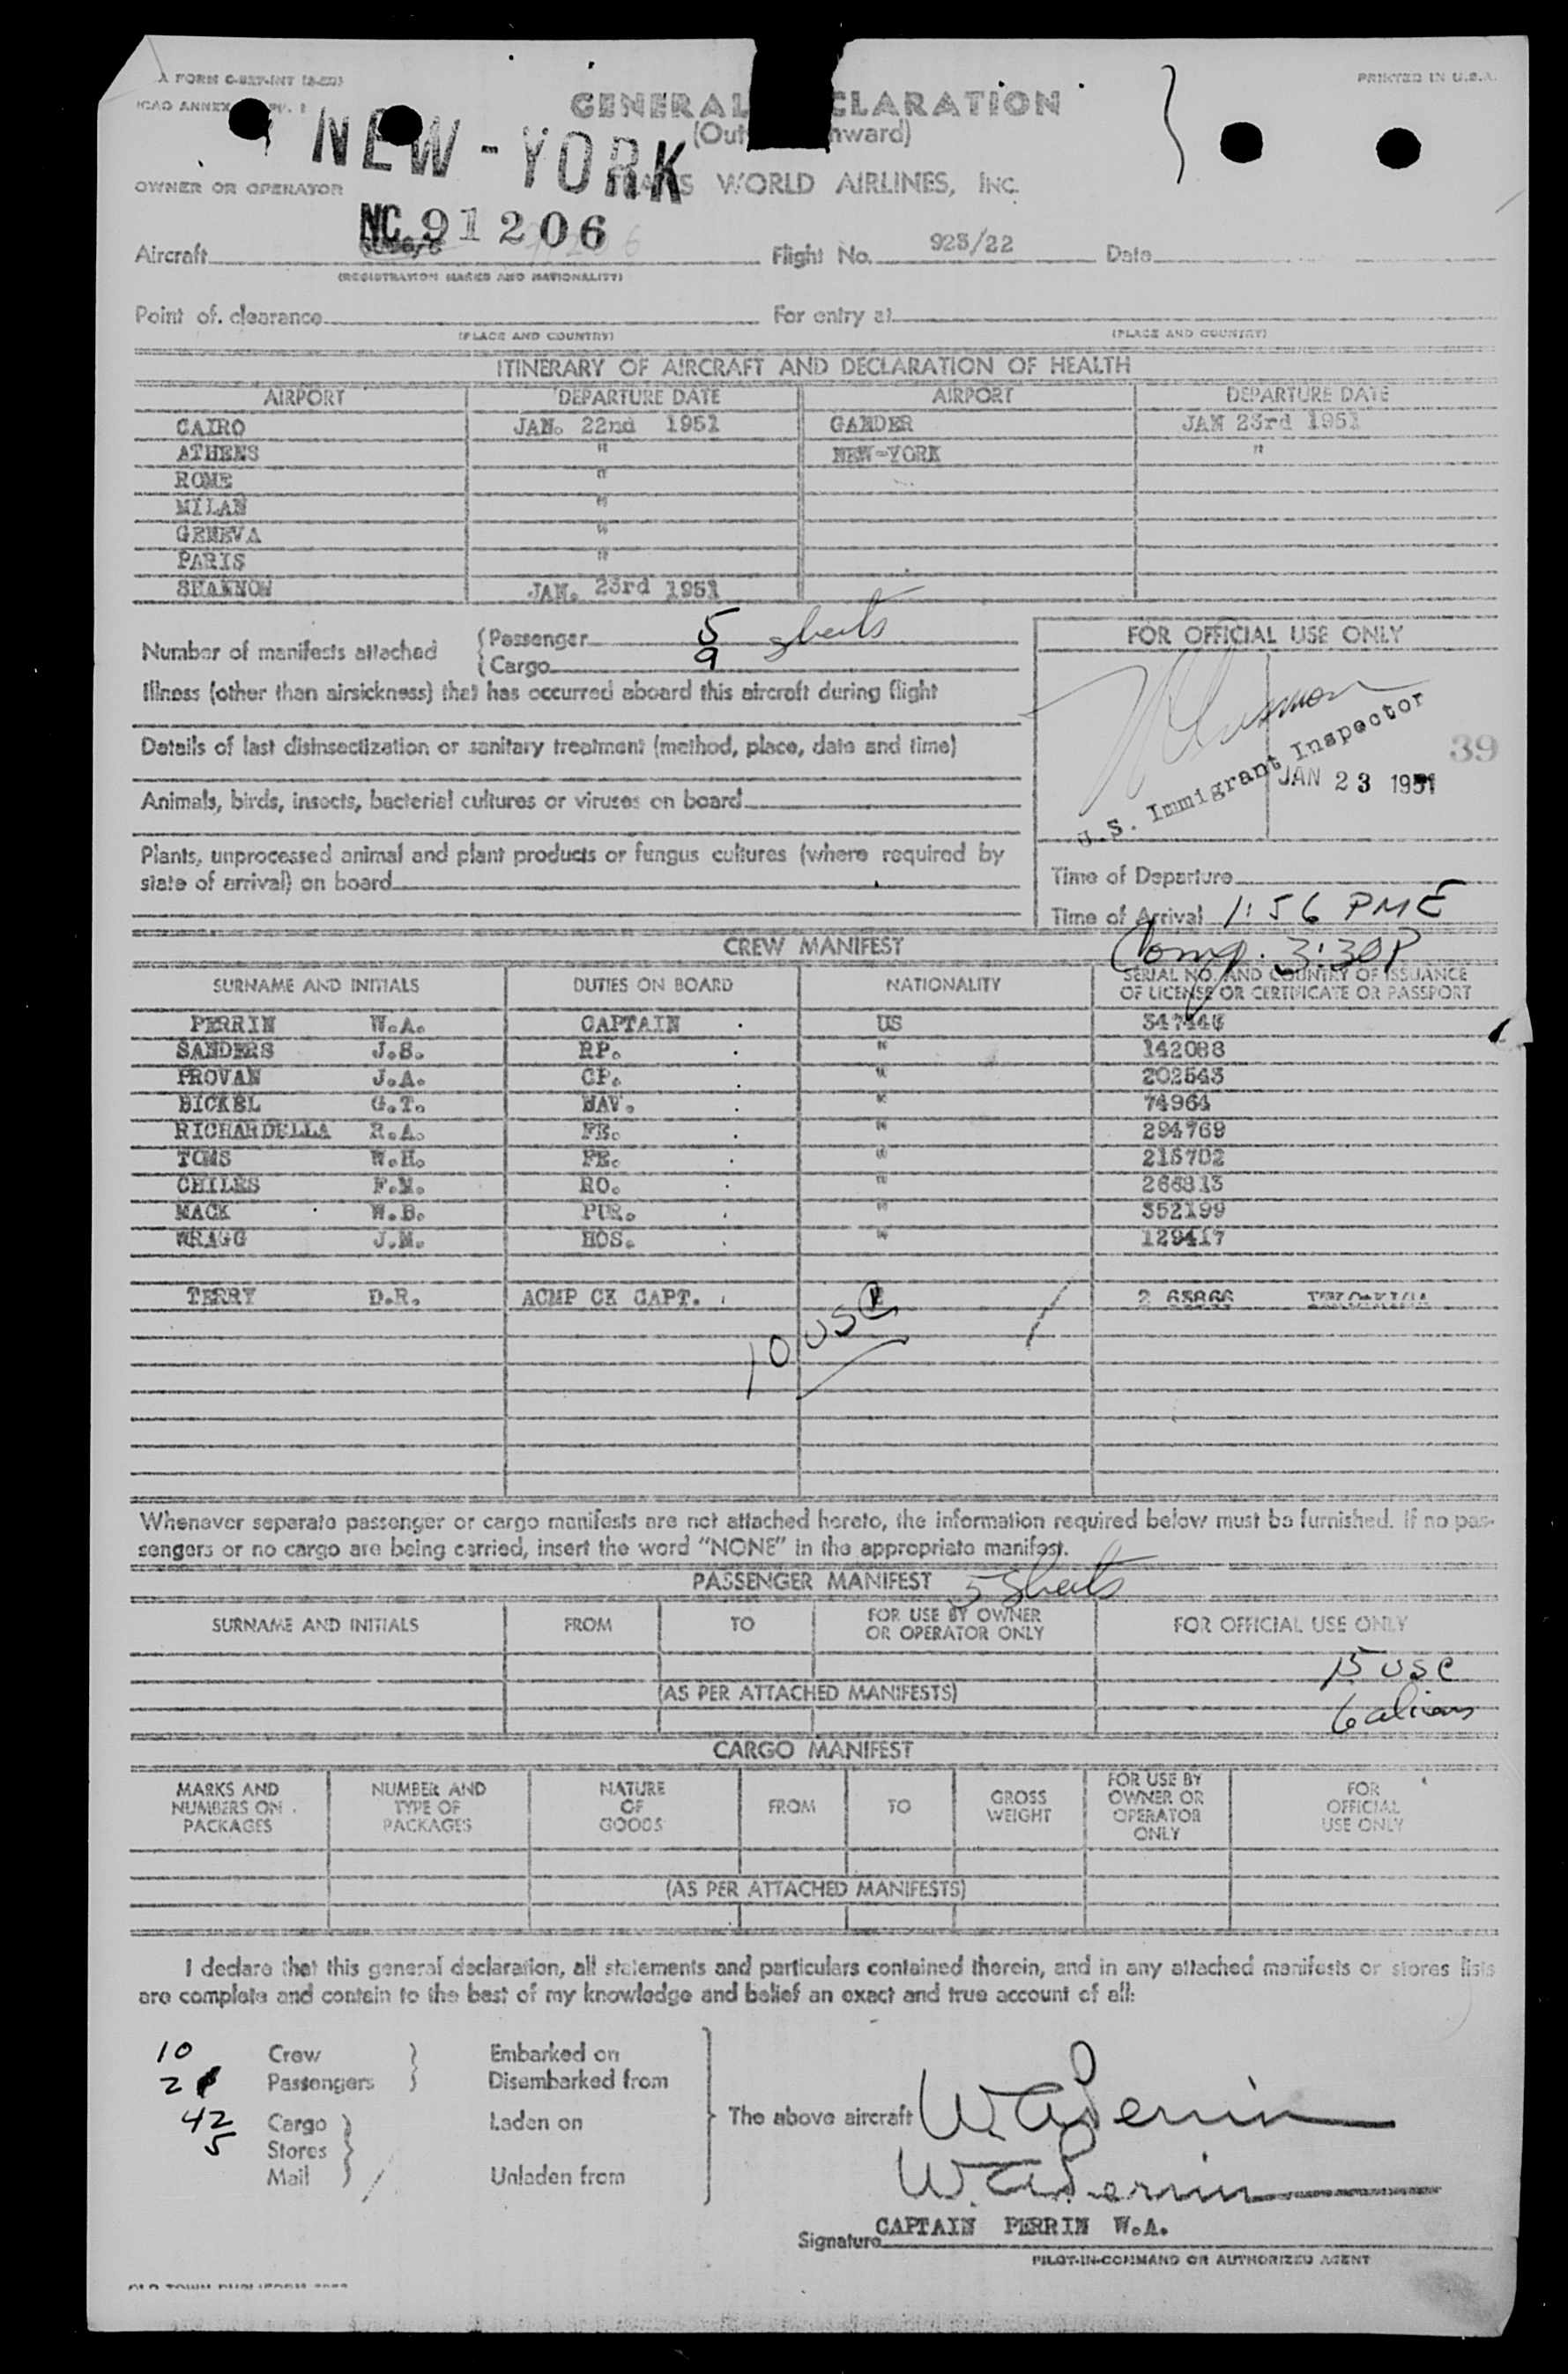 PRINTED IN U.S.A.
ICAO ANNEX
GENERAL CLARATION
NEW-YORK
OWNER OR OPERATOR WORLD AIRLINES, INC.
NC 91206
Aircraft Flight No. 923/22 Date
(REGISTRATION MARKS AND NATIONALITY)
Point of clearance For entry at
(PLACE AND COUNTRY) (PLACE AND COUNTRY)
ITINERARY OF AIRCRAFT AND DECLARATION OF HEALTH
AIRPORT DEPARTURE DATE AIRPORT DEPARTURE DATE
CAIRO JAN. 22nd 1951 GANDER JAN 23rd 1951
ATHENS " NEW-YORK "
ROME "
MILAN "
GENEVA "
PARIS "
SHANNON JAN. 23rd 1951
Number of manifests attached (Passenger 5 sheets
(Cargo 9
FOR OFFICIAL USE ONLY
Illness (other than airsickness) that has occurred aboard this aircraft during flight
Details of last disinsectization or sanitary treatment (method, place, date and time)
U.S. Immigrant Inspector
39
JAN 23 1951
Animals, birds, insects, bacterial cultures or viruses on board
Plants, unprocessed animal and plant products or fungus cultures (where required by
state of arrival) on board
Time of Departure
Time of Arrival 1:56 PME
Comp. 3:30P
CREW MANIFEST
SURNAME AND INITIALS DUTIES ON BOARD NATIONALITY SERIAL NO. AND COUNTRY OF ISSUANCE
OF LICENSE OR CERTIFICATE OR PASSPORT
PERRIN W.A. CAPTAIN US
SANDERS J.S. RP. " 142088
PROVAN J.A. CP. " 202543
BICKEL G.T. NAV. " 74964
RICHARDELLA R.A. FE. " 294769
TOMS W.H. FE. " 215702
CHILES F.M. RO. " 266813
MACK W.B. PUR. " 352199
WRAGG J.M. HOS. " 129417
TERRY D.R. ACMP CK CAPT. 2 65866
10 USC
Whenever separate passenger or cargo manifests are not attached hereto, the information required below must be furnished. If no pas-
sengers or no cargo are being carried, insert the word "NONE" in the appropriate manifest.
PASSENGER MANIFEST 5 sheets
SURNAME AND INITIALS FROM TO FOR USE BY OWNER
OR OPERATOR ONLY FOR OFFICIAL USE ONLY
15 USC
(AS PER ATTACHED MANIFESTS)
6 aliens
CARGO MANIFEST
MARKS AND
NUMBERS ON
PACKAGES
NUMBER AND
TYPE OF
PACKAGES
NATURE
OF
GOODS
FROM
TO
GROSS
WEIGHT
FOR USE BY
OWNER OR
OPERATOR
ONLY
FOR
OFFICIAL
USE ONLY
(AS PER ATTACHED MANIFESTS)
I declare that this general declaration, all statements and particulars contained therein, and in any attached manifests or stores lists
are complete and contain to the best of my knowledge and belief an exact and true account of all:
10 Crew Embarked on
21 Passengers Disembarked from
42 Cargo Laden on
5 Stores
Mail Unladen from
The above aircraft W.A. Perrin
W.A. Perrin
CAPTAIN PERRIN W.A.
Signature
PILOT-IN-COMMAND OR AUTHORIZED AGENT